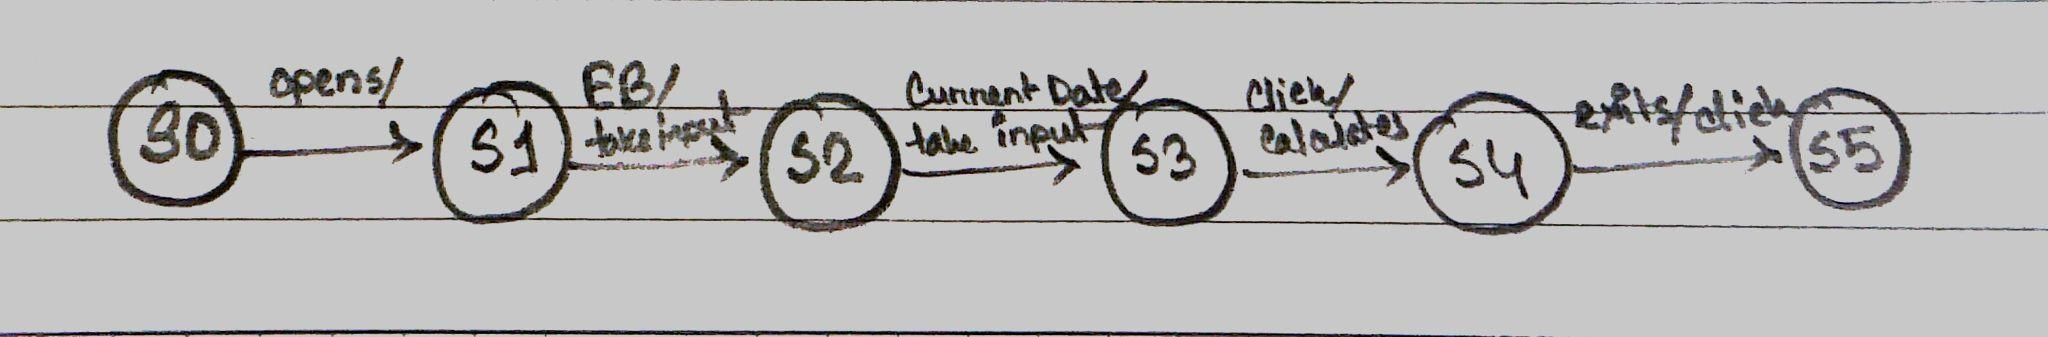 S0
opens/
S1
EB/
take input
S2
Current Date/
take input
S3
Click/
calculates
S4
exits/click
S5